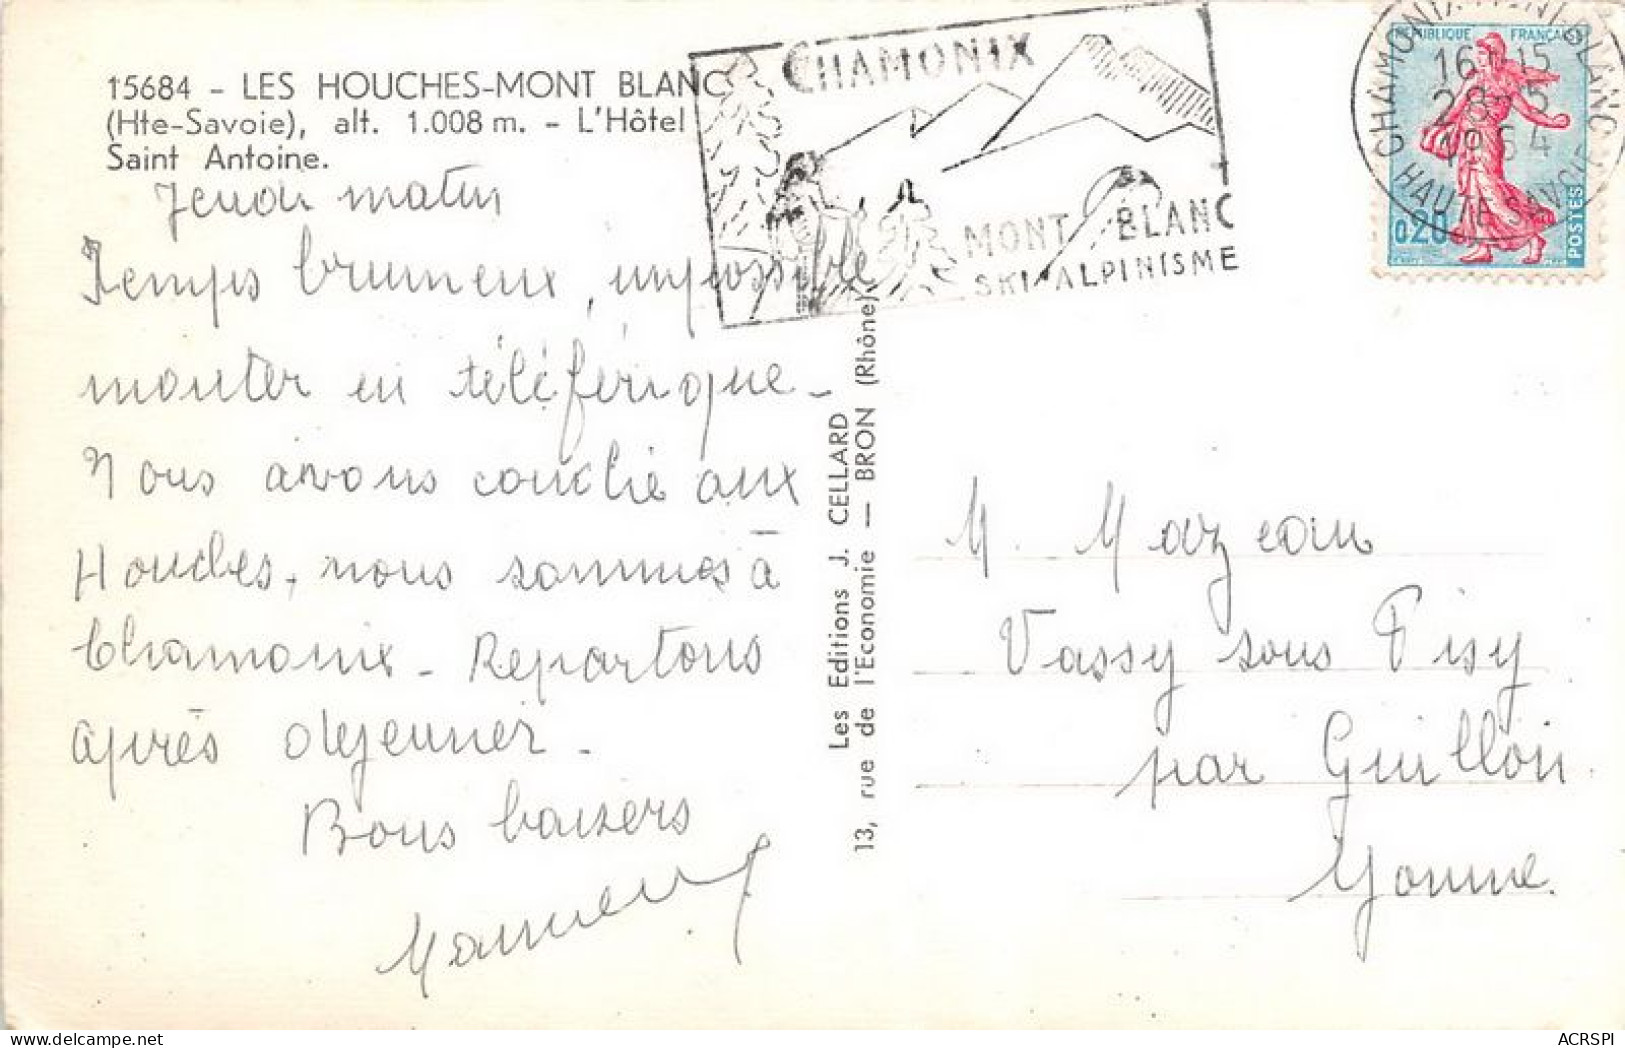 15684 - LES HOUCHES-MONT BLANC
(Hte-Savoie), alt. 1.008 m. - L'Hôtel
Saint Antoine.
Jeudi matin
Temps brumeux, impossible
monter en téléférique -
Nous avons couché aux
Houches, nous sommes à
Chamonix - Repartons
après dejeuner -
Bons baisers
CHAMONIX
MONT BLANC
SKI ALPINISME
CHAMONIX MONT-BLANC
16H15
28-5
1964
HAUTE SAVOIE
RÉPUBLIQUE FRANÇAISE
0,20
POSTES
Les Editions J. CELLARD
13, rue de l'Economie — BRON (Rhône)
M. Mazeau
Vassy sous Pisy
par Guillon
Yonne.
ACRSPI